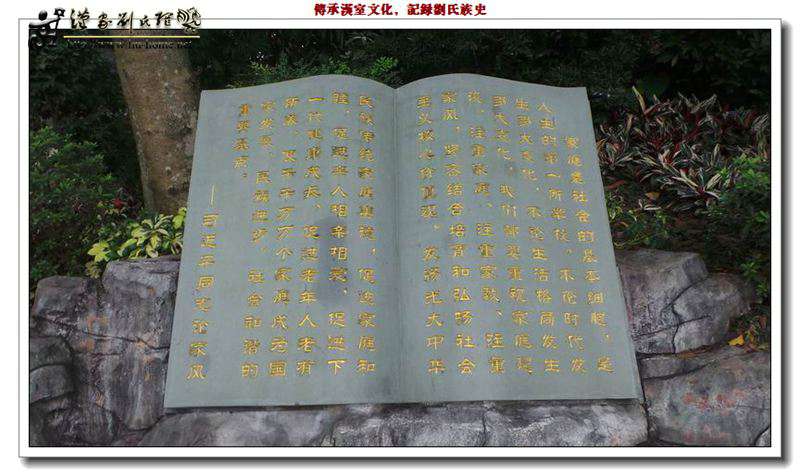 傳承漢室文化，記録劉氏族史
www.liu-home.net
家庭是社会的基本细胞，是
人生的第一所学校。不论时代发
生多大变化，不论生活格局发生
多大变化，我们都要重视家庭建
设，注重家庭、注重家教、注重
家风，紧密结合培育和弘扬社会
主义核心价值观，发扬光大中华
民族传统家庭美德，促进家庭和
睦，促进亲人相亲相爱，促进下
一代健康成长，促进老年人老有
所养，使千千万万个家庭成为国
家发展、民族进步、社会和谐的
重要基点。
——习近平同志论家风